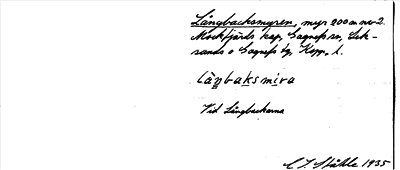 Långbacksmyren, myr 200 m nv 2.
Mockfjärds kap, Gagnefs sn, Lek-
sands o Gagnefs tg, Kopp. l.
långbaksmira
Vid Långbackarna
C I Ståhle 1935